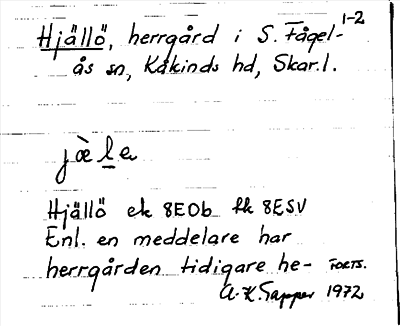 1-2
Hjällö, herrgård i S. Fågel-
ås sn, Kåkinds hd, Skar.l.
jæ̀le
Hjällö ek 8E0b fk 8ESV
Enl. en meddelare har
herrgården tidigare he- FORTS.
A.K. Tapper 1972